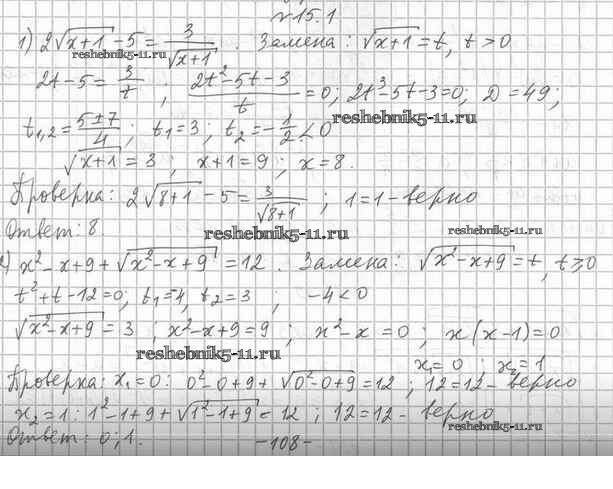 №15.1
1) 2√(x+1) - 5 = 3/√(x+1) . Замена: √(x+1) = t, t > 0
reshebnik5-11.ru
2t - 5 = 3/t ; (2t² - 5t - 3)/t = 0; 2t³ - 5t - 3 = 0; D = 49;
reshebnik5-11.ru
t₁,₂ = (5 ± 7)/4 ; t₁ = 3; t₂ = -1/2 < 0
√(x+1) = 3 ; x + 1 = 9 ; x = 8.
Проверка: 2√(8+1) - 5 = 3/√(8+1) ; 1 = 1 - верно
Ответ: 8.
reshebnik5-11.ru
reshebnik5-11.ru
2) x² - x + 9 + √(x² - x + 9) = 12 . Замена: √(x² - x + 9) = t, t ≥ 0
t² + t - 12 = 0; t₁ = -4, t₂ = 3 , -4 < 0
√(x² - x + 9) = 3 ; x² - x + 9 = 9 ; x² - x = 0 ; x(x - 1) = 0
reshebnik5-11.ru
x₁ = 0 ; x₂ = 1
Проверка: x₁ = 0: 0² - 0 + 9 + √(0² - 0 + 9) = 12 ; 12 = 12 - верно
x₂ = 1: 1² - 1 + 9 + √(1² - 1 + 9) = 12 ; 12 = 12 - верно
reshebnik5-11.ru
Ответ: 0; 1.
-108-